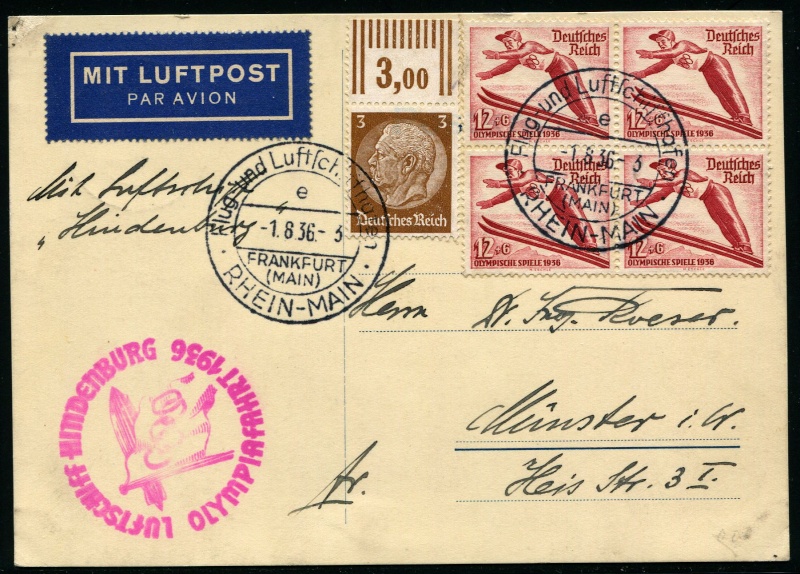 MIT LUFTPOST
PAR AVION
3,00
3
Deutsches Reich
Deutsches
Reich
12+6
OLYMPISCHE SPIELE 1936
Deutsches
Reich
12+6
OLYMPISCHE SPIELE 1936
Deutsches
Reich
12+6
OLYMPISCHE SPIELE 1936
Deutsches
Reich
12+6
OLYMPISCHE SPIELE 1936
Flug- und Luftschiffhafen
e
-1.8.36.- 3
FRANKFURT
(MAIN)
· RHEIN-MAIN ·
Flug- und Luftschiffhafen
e
-1.8.36.- 3
FRANKFURT
(MAIN)
· RHEIN-MAIN ·
Mit Luftschiff
„Hindenburg"
Herrn
Dr. Ing. Roeser.
Münster i. W.
Heis Str. 3 I.
LUFTSCHIFF HINDENBURG
OLYMPIAFAHRT 1936